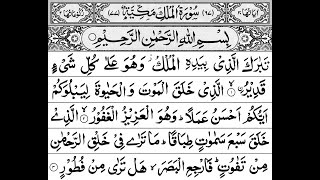 اٰیاتُهَا ٣٠ (٦٧) سُوْرَةُ الْمُلْكِ مَكِّیَّةٌ (٧٧) رُكُوْعَاتُهَا ٢
بِسْمِ اللّٰهِ الرَّحْمٰنِ الرَّحِیْمِ
تَبٰرَكَ الَّذِیْ بِیَدِهِ الْمُلْكُ وَهُوَ عَلٰی كُلِّ شَیْءٍ
قَدِیْرُ ۙ﴿١﴾ الَّذِیْ خَلَقَ الْمَوْتَ وَ الْحَیٰوةَ لِیَبْلُوَكُمْ
اَیُّكُمْ اَحْسَنُ عَمَلًا ؕ وَهُوَ الْعَزِیْزُ الْغَفُوْرُ ۙ﴿٢﴾ الَّذِیْ
خَلَقَ سَبْعَ سَمٰوٰتٍ طِبَاقًا ؕ مَا تَرٰی فِیْ خَلْقِ الرَّحْمٰنِ
مِنْ تَفٰوُتٍ ؕ فَارْجِعِ الْبَصَرَ ۙ هَلْ تَرٰی مِنْ فُطُوْرٍ ﴿٣﴾